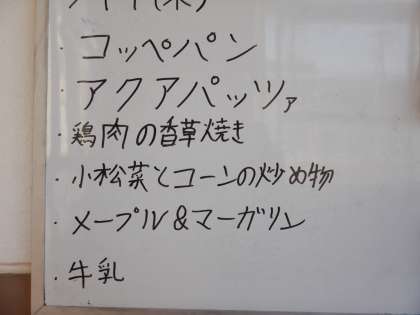 ・コッペパン
・アクアパッツァ
・鶏肉の香草焼き
・小松菜とコーンの炒め物
・メープル&マーガリン
・牛乳